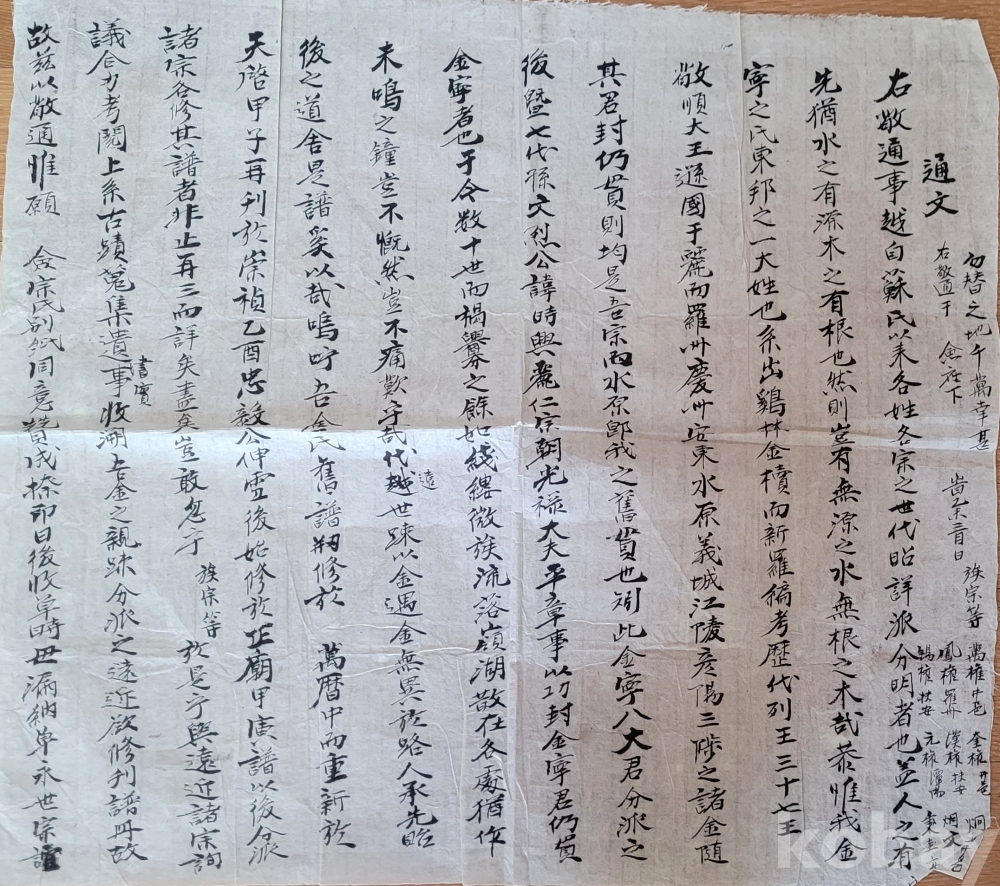 通文
右敬通事越自蘇氏以來各姓各宗之世代昭詳派分明者也盖人之有
先猶水之有源木之有根也然則豈有無源之水無根之木哉恭惟我金
寧之氏東邦之一大姓也系出鷄林金樻而新羅稿考歷代列王三十七王
敬順大王遜國于麗而羅州慶州安東水原義城江陵彦陽三陟之諸金隨
其君封仍貫則均是吾宗而水原郎我之舊貫也矧此金寧八大君分派之
後曁七代孫文烈公諱時興麗仁宗朝光祿大夫平章事以功封金寧君仍貫
金寧者也于今数十世而禍釁之餘如綫縷微族流落嶺湖散在各處猶作
未鳴之鐘豈不慨然豈不痛歎乎哉代遠越世踈以金遇金無異於路人承先昭
後之道舍是譜奚以哉嗚呼吾金氏舊譜刱修於 萬曆中而重新於
天啓甲子再刊於崇禎乙酉忠毅公伸雪後始修於正廟甲庚譜以後分派
諸宗各修其譜者非止再三而詳矣盡矣豈敢忽乎 族宗等 於是乎與遠近諸宗詢
議合力考閱上系古蹟蒐集遺事書實收溯吾金之親踈分派之遠近欲修刊譜冊故
故玆以敬通惟願 僉宗氏別紙同意贊成捺印日後收草時毋漏納單永世宗誼
勿替之地千萬幸甚
右敬通于 僉座下
族宗等